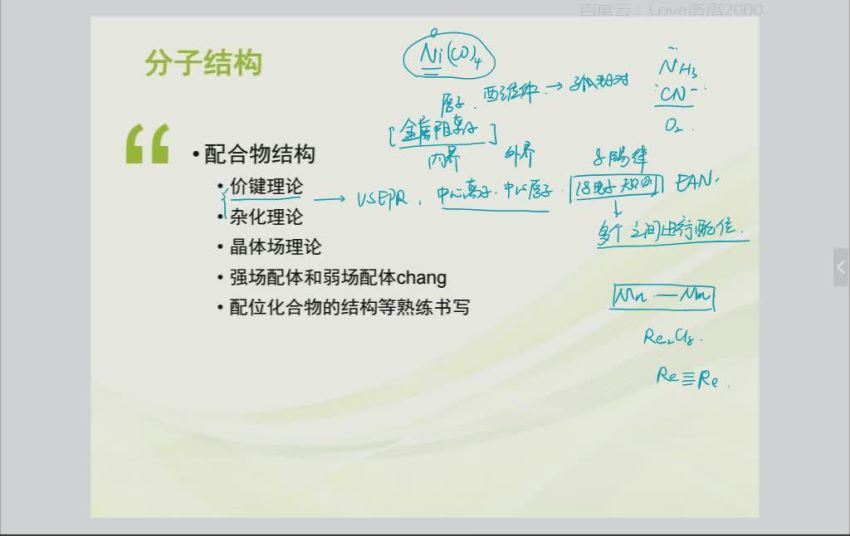 百度云：Love洛洛2000
分子结构
Ni(CO)4
0
NH3
CN-
O2
原子
配体 → 孤电子对
[金属阳离子]
内界 外界
• 配合物结构
• 价键理论 → VSEPR, 中心离子.中心原子. 18电子规则 EAN.
8隅律
• 杂化理论
多个 之间进行配位.
• 晶体场理论
• 强场配体和弱场配体chang
• 配位化合物的结构等熟练书写
Mn — Mn
Re2Cl8.
Re≣Re.